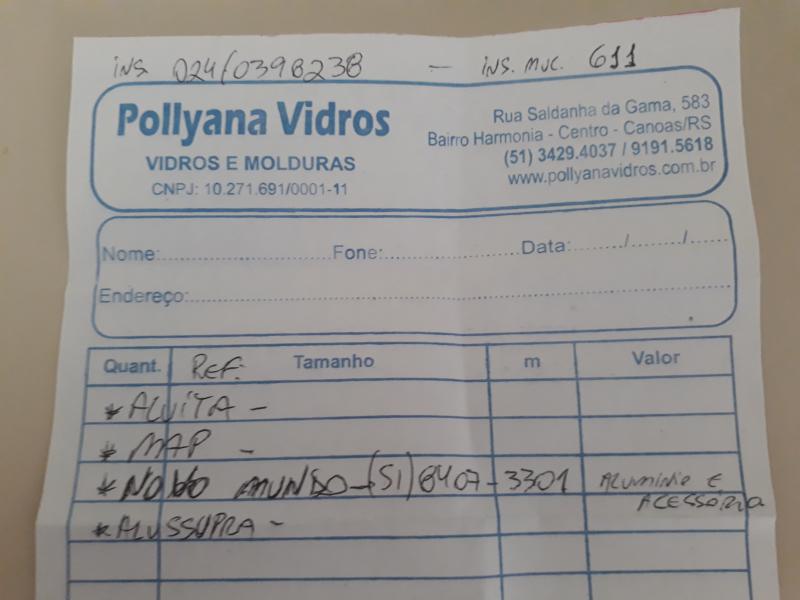 INS. 024/0398238 - INS. MUC. 611
Pollyana Vidros
VIDROS E MOLDURAS
CNPJ: 10.271.691/0001-11
Rua Saldanha da Gama, 583
Bairro Harmonia - Centro - Canoas/RS
(51) 3429.4037 / 9191.5618
www.pollyanavidros.com.br
Nome: Fone: Data: / /
Endereço:
Quant. Ref: Tamanho m Valor
* ALVITA -
* MAP -
* NOVO MUNDO - (51) 8407-3301 ALUMINIO E
ACESSÓRIA
* ALUSSUPRA -